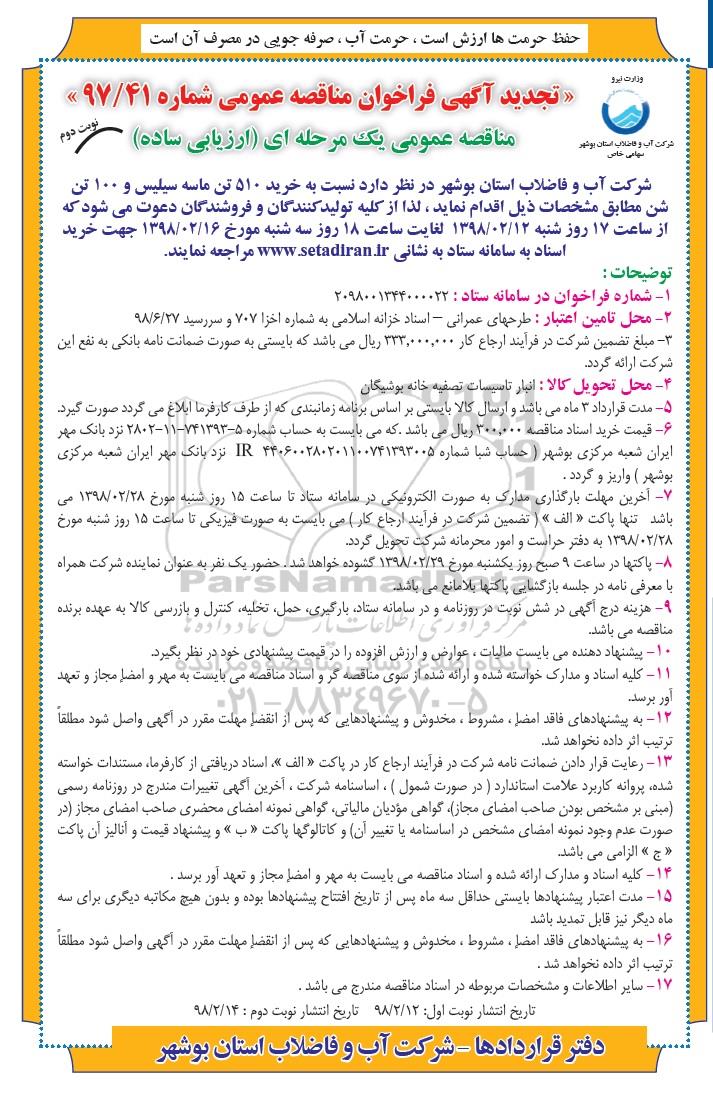 حفظ حرمت ها ارزش است ، حرمت آب ، صرفه جویی در مصرف آن است
وزارت نیرو
شرکت آب و فاضلاب استان بوشهر
سهامی خاص
« تجدید آگهی فراخوان مناقصه عمومی شماره ۹۷/۴۱ »
نوبت دوم
مناقصه عمومی یک مرحله ای (ارزیابی ساده)
شرکت آب و فاضلاب استان بوشهر در نظر دارد نسبت به خرید ۵۱۰ تن ماسه سیلیس و ۱۰۰ تن
شن مطابق مشخصات ذیل اقدام نماید ، لذا از کلیه تولیدکنندگان و فروشندگان دعوت می شود که
از ساعت ۱۷ روز شنبه ۱۳۹۸/۰۲/۱۲ لغایت ساعت ۱۸ روز سه شنبه مورخ ۱۳۹۸/۰۲/۱۶ جهت خرید
اسناد به سامانه ستاد به نشانی www.setadiran.ir مراجعه نمایند.
توضیحات :
۱- شماره فراخوان در سامانه ستاد : ۲۰۹۸۰۰۱۳۴۴۰۰۰۰۲۲
۲- محل تامین اعتبار : طرحهای عمرانی – اسناد خزانه اسلامی به شماره اخزا ۷۰۷ و سررسید ۹۸/۶/۲۷
۳- مبلغ تضمین شرکت در فرآیند ارجاع کار ۳۳۳,۰۰۰,۰۰۰ ریال می باشد که بایستی به صورت ضمانت نامه بانکی به نفع این
شرکت ارائه گردد.
۴- محل تحویل کالا : انبار تاسیسات تصفیه خانه بوشیگان
۵- مدت قرارداد ۳ ماه می باشد و ارسال کالا بایستی بر اساس برنامه زمانبندی که از طرف کارفرما ابلاغ می گردد صورت گیرد.
۶- قیمت خرید اسناد مناقصه ۳۰۰,۰۰۰ ریال می باشد .که می بایست به حساب شماره ۵-۷۴۱۳۹۳-۱۱-۲۸۰۲ نزد بانک مهر
ایران شعبه مرکزی بوشهر ( حساب شبا شماره IR ۴۴۰۶۰۰۲۸۰۲۰۱۱۰۰۷۴۱۳۹۳۰۰۵ نزد بانک مهر ایران شعبه مرکزی
بوشهر ) واریز و گردد .
۷- آخرین مهلت بارگذاری مدارک به صورت الکترونیکی در سامانه ستاد تا ساعت ۱۵ روز شنبه مورخ ۱۳۹۸/۰۲/۲۸ می
باشد تنها پاکت « الف » ( تضمین شرکت در فرآیند ارجاع کار ) می بایست به صورت فیزیکی تا ساعت ۱۵ روز شنبه مورخ
۱۳۹۸/۰۲/۲۸ به دفتر حراست و امور محرمانه شرکت تحویل گردد.
۸- پاکتها در ساعت ۹ صبح روز یکشنبه مورخ ۱۳۹۸/۰۲/۲۹ گشوده خواهد شد . حضور یک نفر به عنوان نماینده شرکت همراه
با معرفی نامه در جلسه بازگشایی پاکتها بلامانع می باشد.
ParsNamadData
۹- هزینه درج آگهی در شش نوبت در روزنامه و در سامانه ستاد، بارگیری، حمل، تخلیه، کنترل و بازرسی کالا به عهده برنده
مناقصه می باشد.
مرکز فرآوری اطلاعات پارس نماد داده ها
۱۰- پیشنهاد دهنده می بایست مالیات ، عوارض و ارزش افزوده را در قیمت پیشنهادی خود در نظر بگیرد.
پایگاه اطلاع رسانی مناقصه و مزایده
۱۱- کلیه اسناد و مدارک خواسته شده و ارائه شده از سوی مناقصه گر و اسناد مناقصه می بایست به مهر و امضا مجاز و تعهد
آور برسد.
۰۲۱-۸۸۳۴۹۶۷۰-۵
۱۲- به پیشنهادهای فاقد امضا ، مشروط ، مخدوش و پیشنهادهایی که پس از انقضا مهلت مقرر در آگهی واصل شود مطلقاً
ترتیب اثر داده نخواهد شد.
۱۳- رعایت قرار دادن ضمانت نامه شرکت در فرآیند ارجاع کار در پاکت « الف »، اسناد دریافتی از کارفرما، مستندات خواسته
شده، پروانه کاربرد علامت استاندارد ( در صورت شمول ) ، اساسنامه شرکت ، آخرین آگهی تغییرات مندرج در روزنامه رسمی
(مبنی بر مشخص بودن صاحب امضای مجاز)، گواهی مؤدیان مالیاتی، گواهی نمونه امضای محضری صاحب امضای مجاز (در
صورت عدم وجود نمونه امضای مشخص در اساسنامه یا تغییر آن) و کاتالوگها پاکت « ب » و پیشنهاد قیمت و آنالیز آن پاکت
« ج » الزامی می باشد.
۱۴- کلیه اسناد و مدارک ارائه شده و اسناد مناقصه می بایست به مهر و امضا مجاز و تعهد آور برسد .
۱۵- مدت اعتبار پیشنهادها بایستی حداقل سه ماه پس از تاریخ افتتاح پیشنهادها بوده و بدون هیچ مکاتبه دیگری برای سه
ماه دیگر نیز قابل تمدید باشد
۱۶- به پیشنهادهای فاقد امضا ، مشروط ، مخدوش و پیشنهادهایی که پس از انقضا مهلت مقرر در آگهی واصل شود مطلقاً
ترتیب اثر داده نخواهد شد .
۱۷- سایر اطلاعات و مشخصات مربوطه در اسناد مناقصه مندرج می باشد .
تاریخ انتشار نوبت اول: ۹۸/۲/۱۲ تاریخ انتشار نوبت دوم : ۹۸/۲/۱۴
دفتر قراردادها - شرکت آب و فاضلاب استان بوشهر